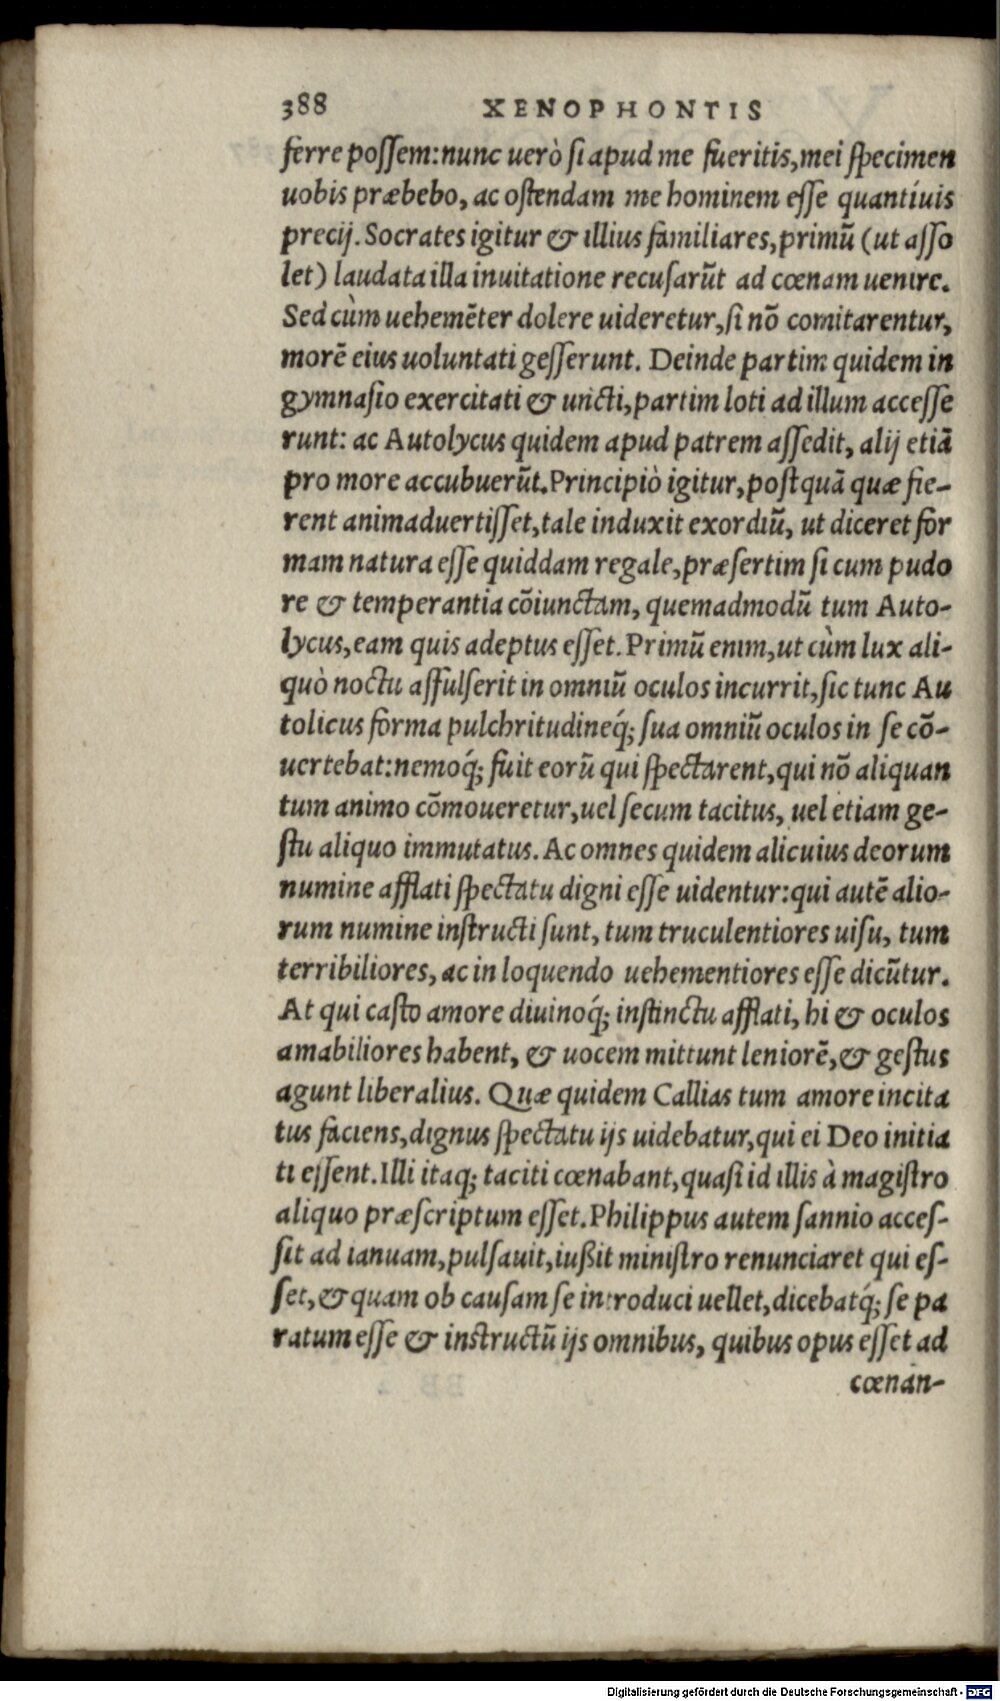 388 XENOPHONTIS
ferre possem: nunc uerò si apud me fueritis, mei specimen
uobis præbebo, ac ostendam me hominem esse quantíuis
precij. Socrates igitur & illius familiares, primũ (ut asso
let) laudata illa inuitatione recusarũt ad cœnam uenire.
Sed cùm uehemẽter dolere uideretur, si nõ comitarentur,
morẽ eius uoluntati gesserunt. Deinde partim quidem in
gymnasio exercitati & uncti, partim loti ad illum accesse
runt: ac Autolycus quidem apud patrem assedit, alij etiã
pro more accubuerũt. Principiò igitur, postquã quæ fie-
rent animaduertisset, tale induxit exordiũ, ut diceret for
mam natura esse quiddam regale, præsertim si cum pudo
re & temperantia cõiunctam, quemadmodũ tum Auto-
lycus, eam quis adeptus esset. Primũ enim, ut cùm lux ali-
quò noctu affulserit in omniũ oculos incurrit, sic tunc Au
tolicus forma pulchritudineq́; sua omniũ oculos in se cõ-
uertebat: nemoq́; fuit eorũ qui spectarent, qui nõ aliquan
tum animo cõmoueretur, uel secum tacitus, uel etiam ge-
stu aliquo immutatus. Ac omnes quidem alicuius deorum
numine afflati spectatu digni esse uidentur: qui autẽ alio-
rum numine instructi sunt, tum truculentiores uisu, tum
terribiliores, ac in loquendo uehementiores esse dicũtur.
At qui casto amore diuinoq́; instinctu afflati, hi & oculos
amabiliores habent, & uocem mittunt leniorẽ, & gestus
agunt liberalius. Quæ quidem Callias tum amore incita
tus faciens, dignus spectatu ijs uidebatur, qui ei Deo initia
ti essent. Illi itaq; taciti cœnabant, quasi id illis à magistro
aliquo præscriptum esset. Philippus autem sannio acces-
sit ad ianuam, pulsauit, iußit ministro renunciaret qui es-
set, & quam ob causam se introduci uellet, dicebatq́; se pa
ratum esse & instructũ ijs omnibus, quibus opus esset ad
cœnan-
Digitalisierung gefördert durch die Deutsche Forschungsgemeinschaft - DFG